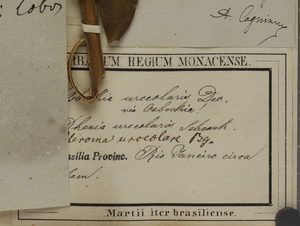 Cobos
A. Cogniaux
RBARIUM REGIUM MONACENSE.
urceolaris Dec.
via Osbeckia!
Rhexia urceolaris Schrank.
urceolare Bg.
asilia Provinc. Rio Janeiro circa
Martii iter brasiliense.